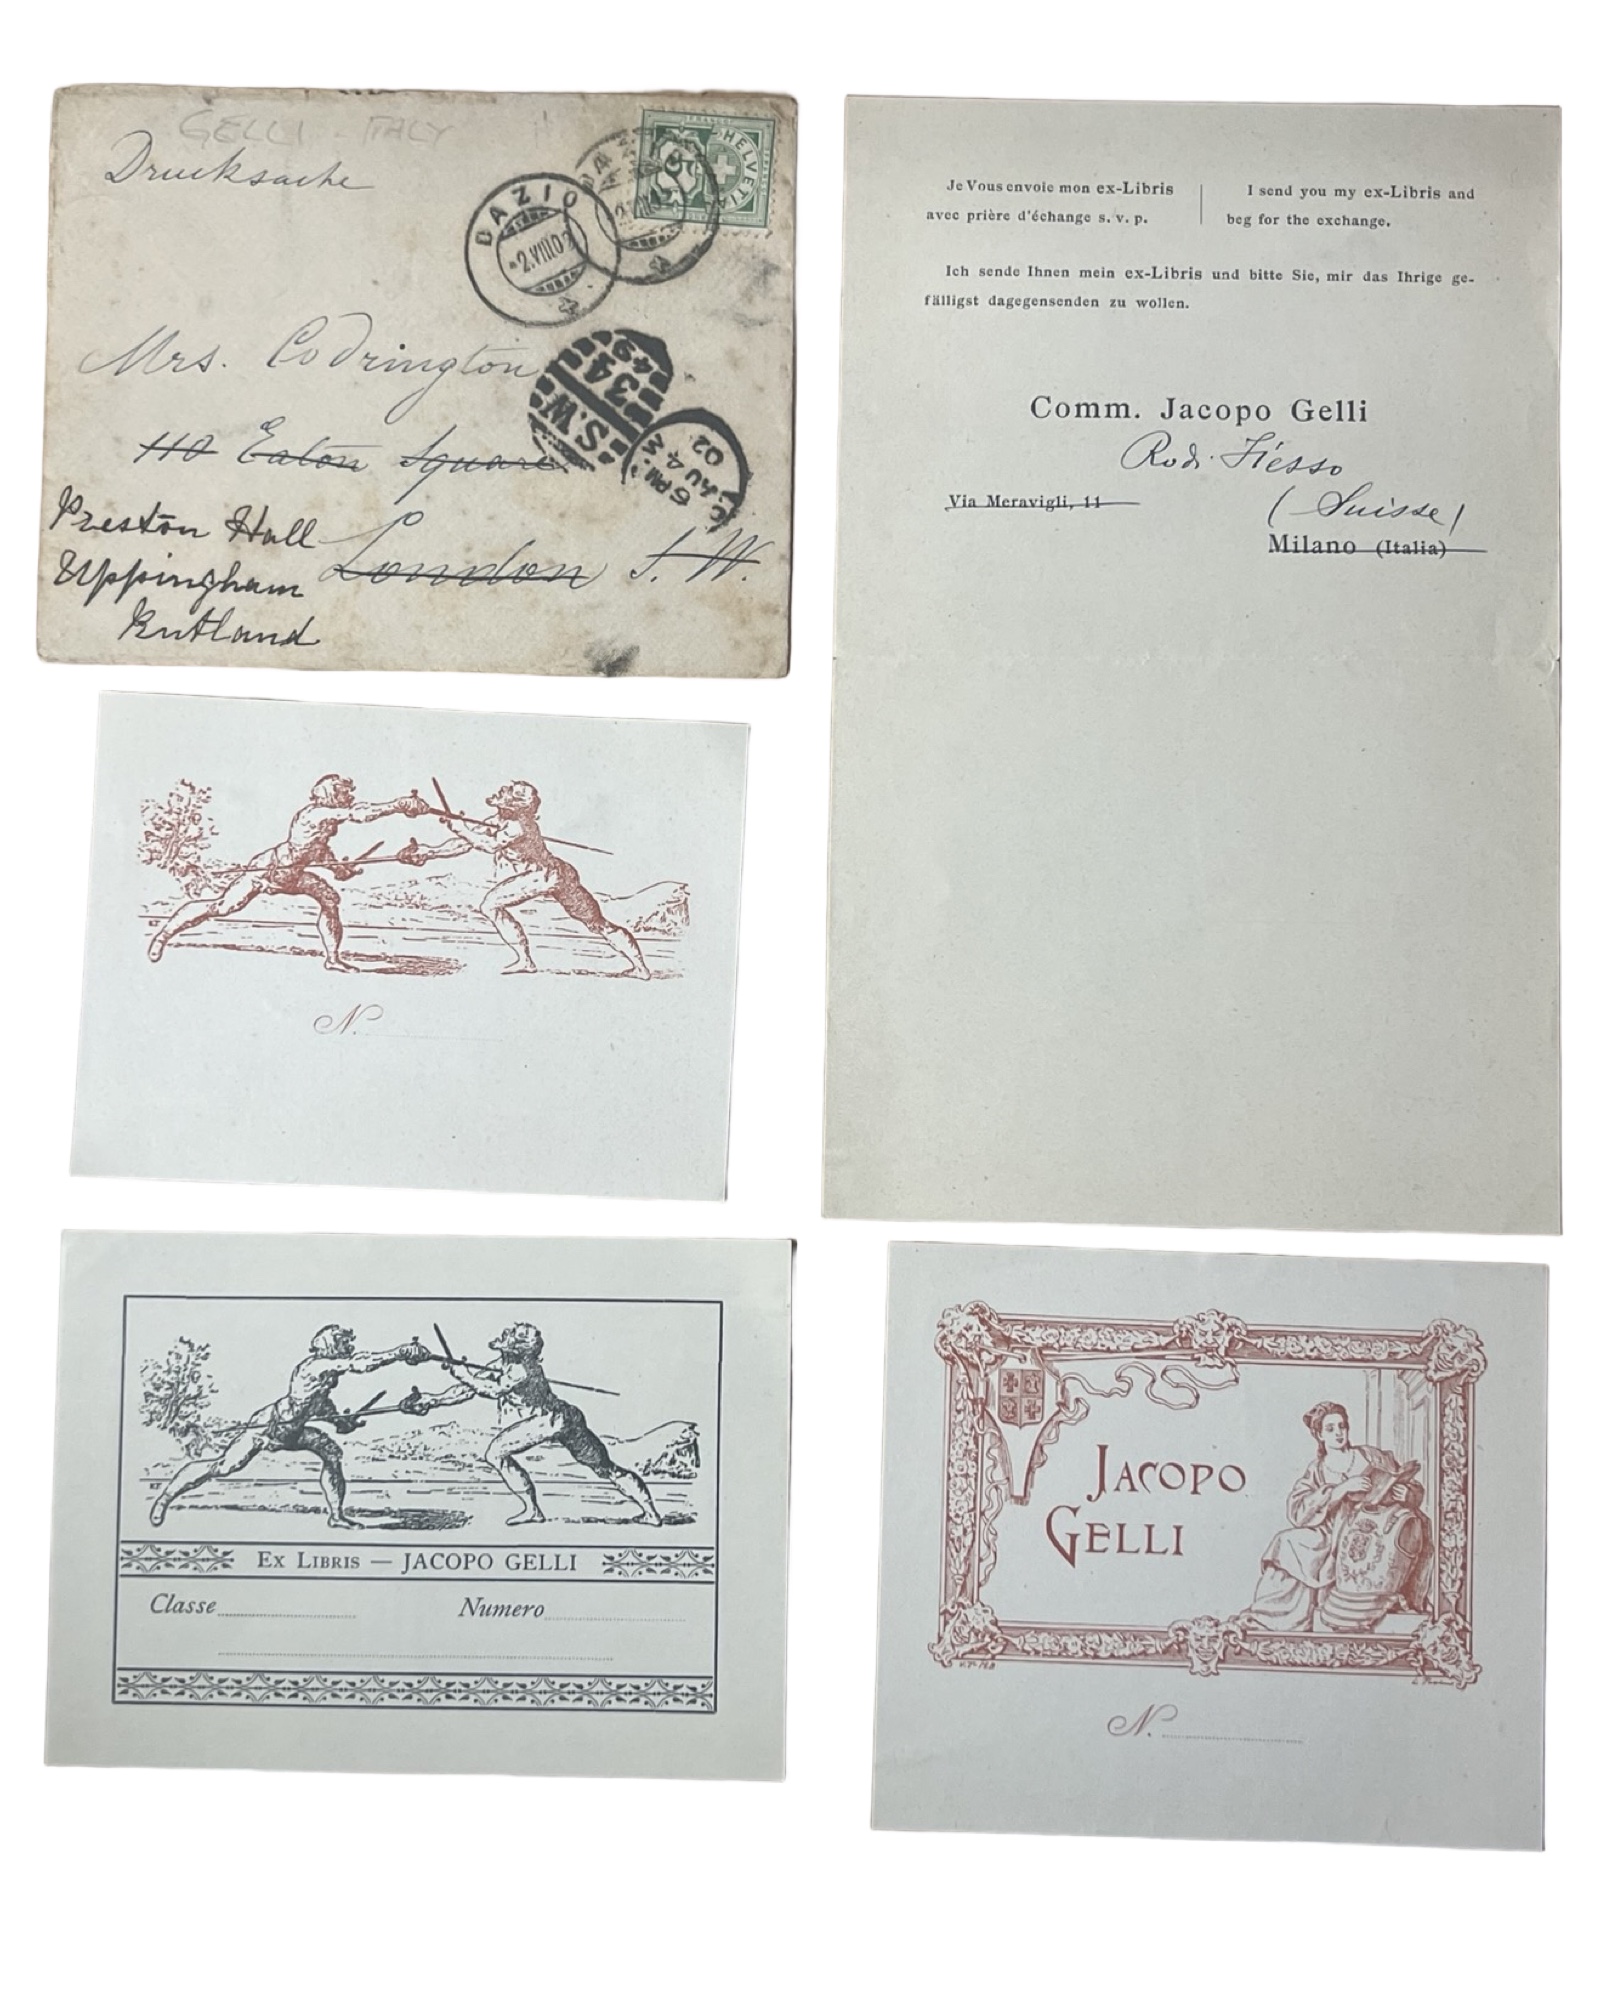 GELLI - ITALY
Drucksache
FRANCO
HELVETIA
5
DAZIO
2.VIII.02
Mrs. Codrington
S.W
34
49
6 PM
AU 4
02
110 Eaton Square
London S. W.
Preston Hall
Uppingham
Rutland
Je Vous envoie mon ex-Libris
avec prière d'échange s. v. p.
I send you my ex-Libris and
beg for the exchange.
Ich sende Ihnen mein ex-Libris und bitte Sie, mir das Ihrige ge-
fälligst dagegensenden zu wollen.
Comm. Jacopo Gelli
Rodi-Fiesso
(Suisse)
Via Meravigli, 11
Milano (Italia)
N.
EX LIBRIS — JACOPO GELLI
Classe
Numero
JACOPO
GELLI
N.